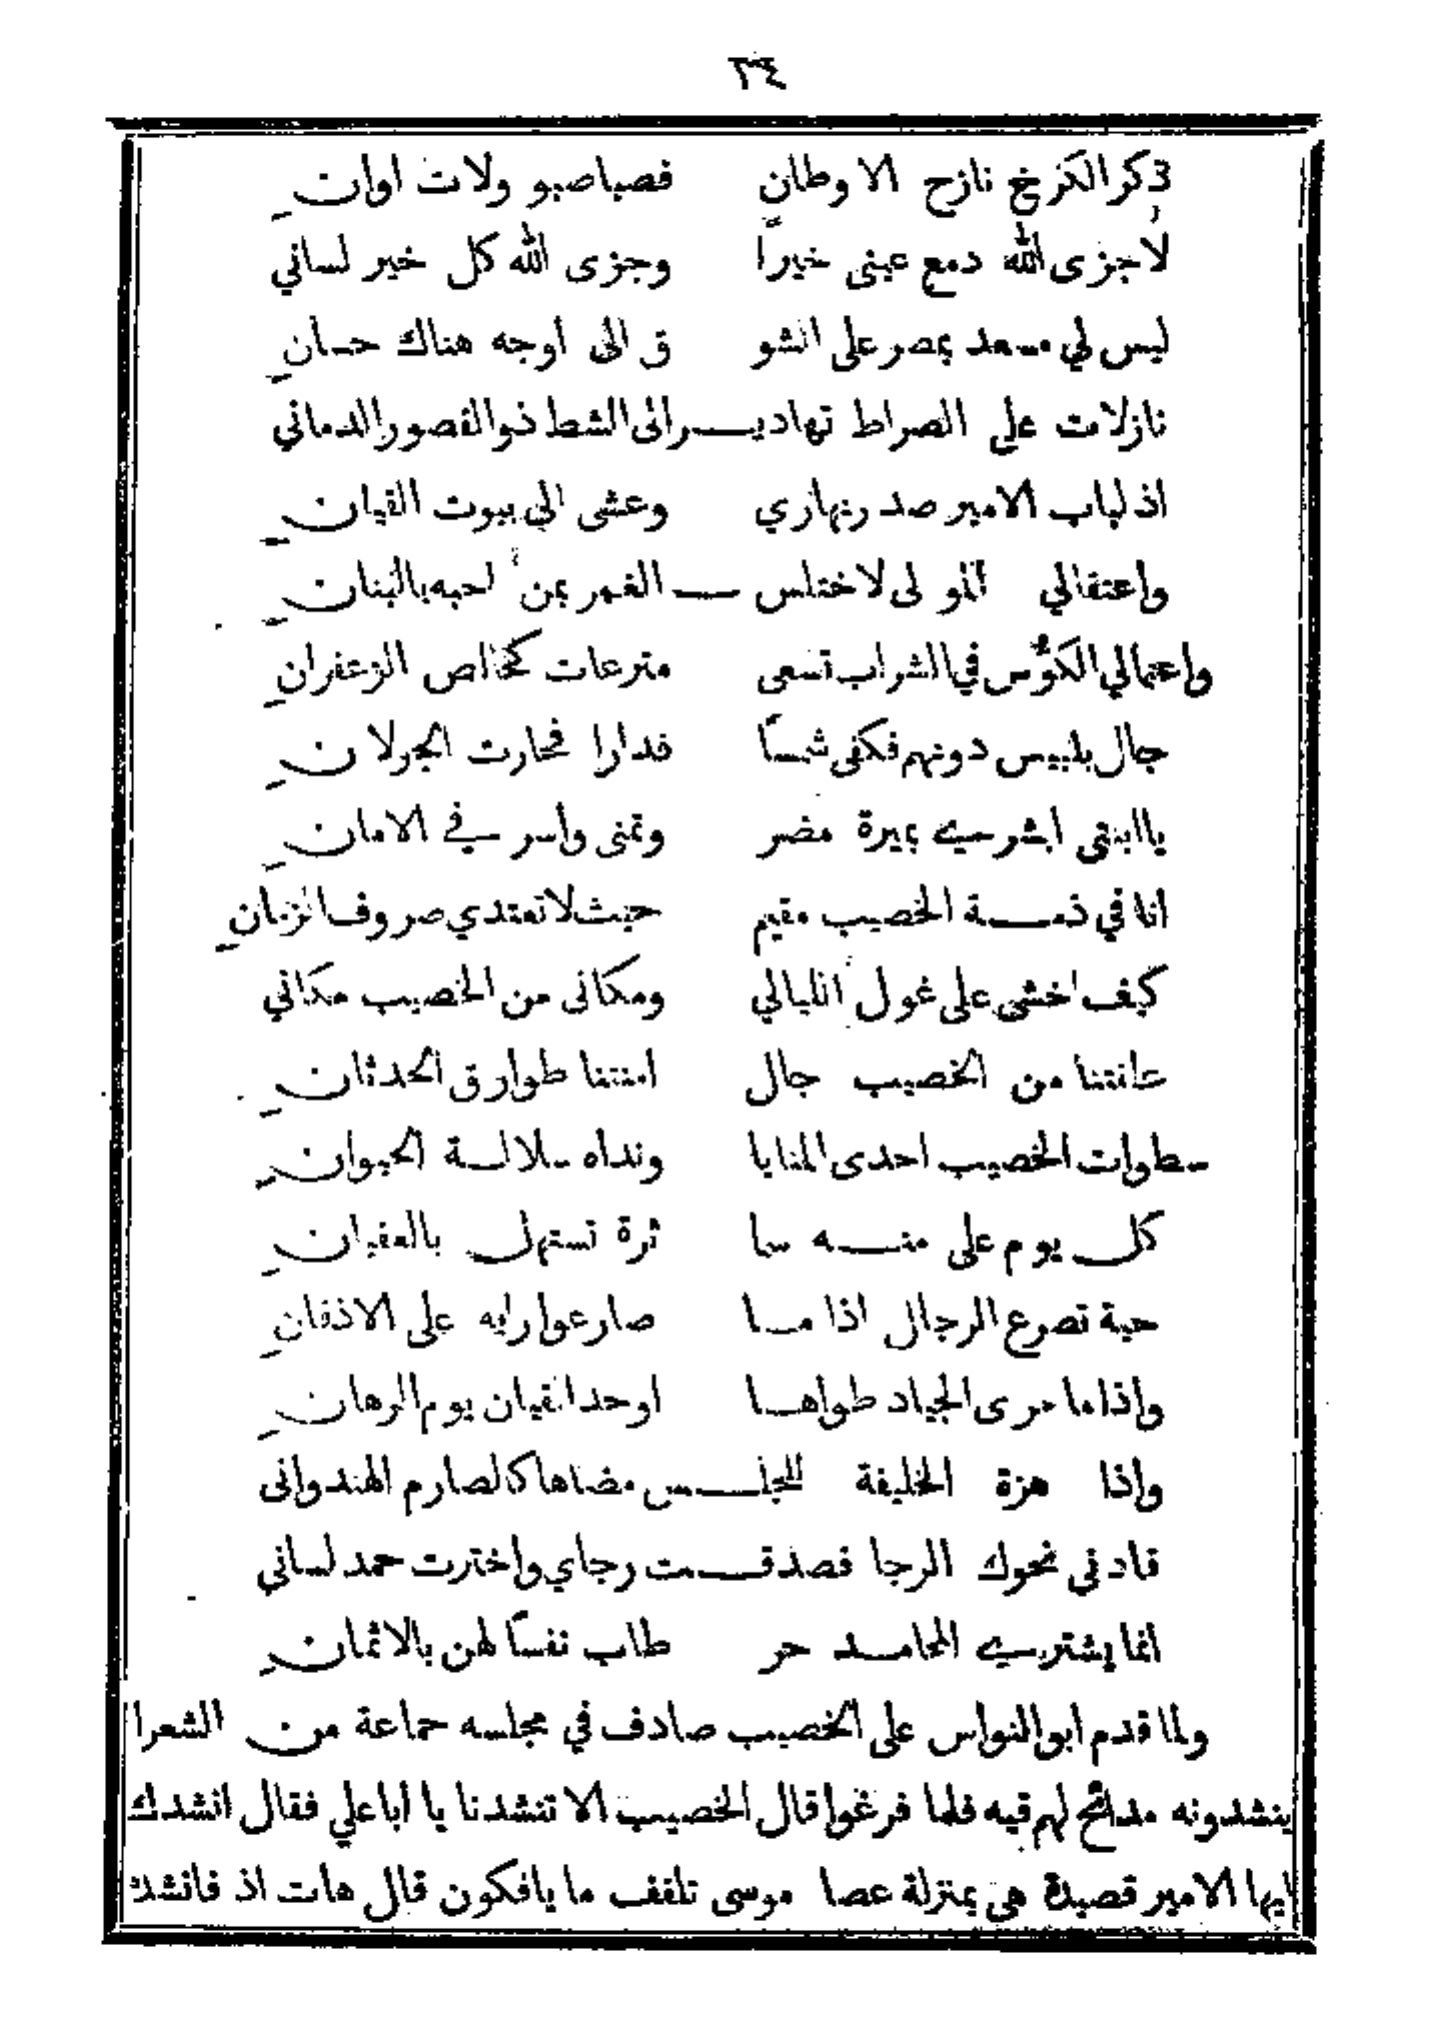 ٣٤
ذكر الكرخ نازح الاوطان فصبا صبو ولات اوان
لا جزى الله دمع عيني خيرًا وجزى الله كل خير لساني
ليس لي مسعد بمصر على الشو ق الى اوجه هناك حسان
نازلات على الصراط تهاديـر الى الشط ذو القصور الدماني
اذ لباب الامير صدر نهاري وعشى الي بيوت القيان
واعتقالي المولى لاختلس الغمر بمن احبه بالبنان
واعمالي الكؤس في الشراب تسعى مترعات كخالص الزعفران
جال بلبيس دونهم فكفى شمسًا فدارا فحارت الجولان
يا ابنتي ابشرى بميرة مضر وتمنى واسرفي الامان
انا في ذمة الخصيب مقيم حيث لا تعتدي صروف الزمان
كيف اخشى على غول الليالي ومكانى من الخصيب مكاني
عانتنا من الخصيب جال امنتنا طوارق الحدثان
سطوات الخصيب احدى المنايا ونداه سلالة الحيوان
كل يوم على منه سما ثرة تستهل بالعقيان
حية تصرع الرجال اذا ما صارعوا رايه على الاذقان
واذا ما جرى الجياد طواها اوحد القيان يوم الرهان
واذا هزة الخليفة للجلس مضاها كالصارم الهندوانى
قادني نحوك الرجا فصدقـت رجاي واخترت حمد لساني
انما يشترى المحامد حر طاب نفسًا لهن بالاثمان
ولما قدم ابو النواس على الخصيب صادف في مجلسه جماعة من الشعرا
ينشدونه مدائح لهم فيه فلما فرغوا قال الخصيب الا تنشدنا يا ابا علي فقال انشدك
ايها الامير قصيدة هي بمنزلة عصا موسى تلقف ما يافكون قال هات اذ فانشد